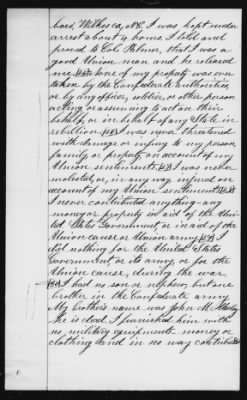 boro, Wilkes co, N.C. I was kept under
arrest about 4 hours. I told and
proved to Col. Palmer, that I was a
good Union man and he released
me. None of my property was ever
taken by the Confederate authorities,
or by any officer, soldier, or other person
acting or assuming to act on their
behalf, or in behalf of any State in
rebellion. I was never threatened
with damage or injury to my person
family or property on account of my
Union sentiments. I was never
molested or, in any way injured on
account of my Union sentiments.
I never contributed anything—any
money or property in aid of the Uni-
ted States Government or in aid of the
Union cause or Union army. I
did nothing for the United States
Government or its army, or for the
Union cause, during the war.
I had no son or nephew, but one
brother in the Confederate army.
My brother's name was John M.
He is dead. I furnished him with
no military equipments money or
clothing and in no way contributed